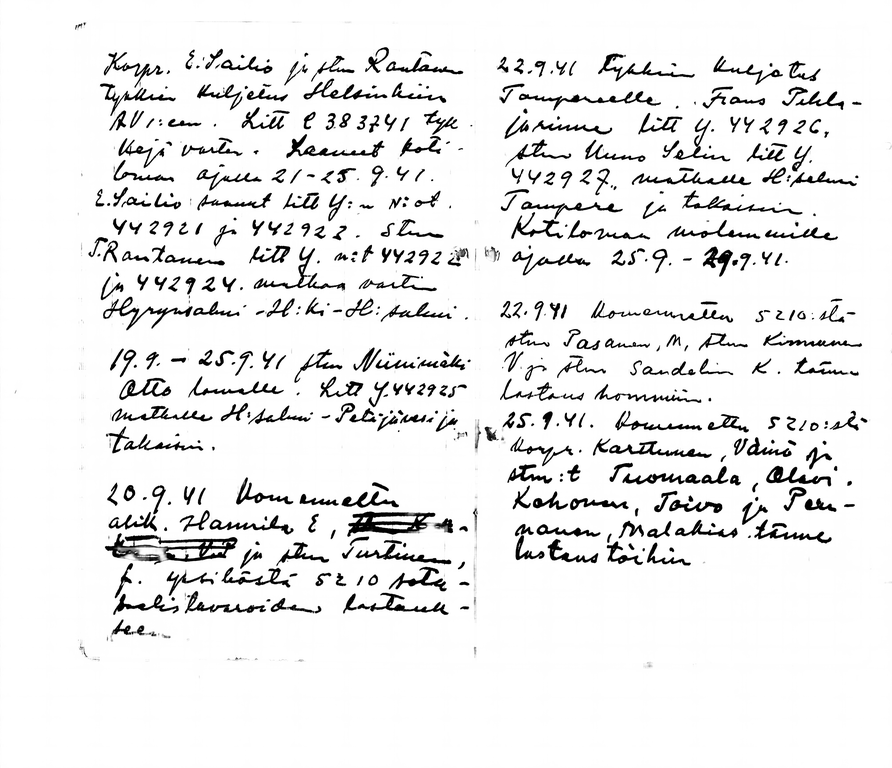 Korpr. E. Sailio ja stm Rantanen
tykkien kuljetus Helsinkiin
AV1:een. Litt C 383741 tyk-
kejä varten. Saaneet koti-
loman ajalla 21-25.9.41.
E. Sailio saanut litt Y:n N:ot.
442921 ja 442922. Stm
T. Rantanen litt Y. n:t 442922
ja 442924. matkaa varten
Hyrynsalmi - H:ki - H:salmi.
19.9. - 25.9.41 stm Niinimäki
Otto lomalle. Litt Y.442925
matkalle H:salmi - Petäjävesi ja
takaisin.
20.9.41 Komennettu
alik. Hannila E,
ja stm Turtinen,
f. yksiköstä 5210 sota-
saalistavaroiden lastauk-
seen
22.9.41 Tykkien kuljetus
Tampereelle. Frans
litt Y. 442926,
stm Uuno Selin litt Y.
442927, matkalle H:salmi
Tampere ja takaisin.
Kotilomaa molemmille
ajalla 25.9. - 29.9.41.
22.9.41 Komennettu 5210:stä
stm Pasanen, M, stm Kinnunen
V. ja stm Sandelin K. tänne
lastaus hommiin.
25.9.41. Komennettu 5210:stä
korpr. Karttunen, Väinö ja
stm:t Tuomaala, Olavi.
Kohonen, Toivo ja Pen-
nanen, Malakias tänne
lastaustöihin